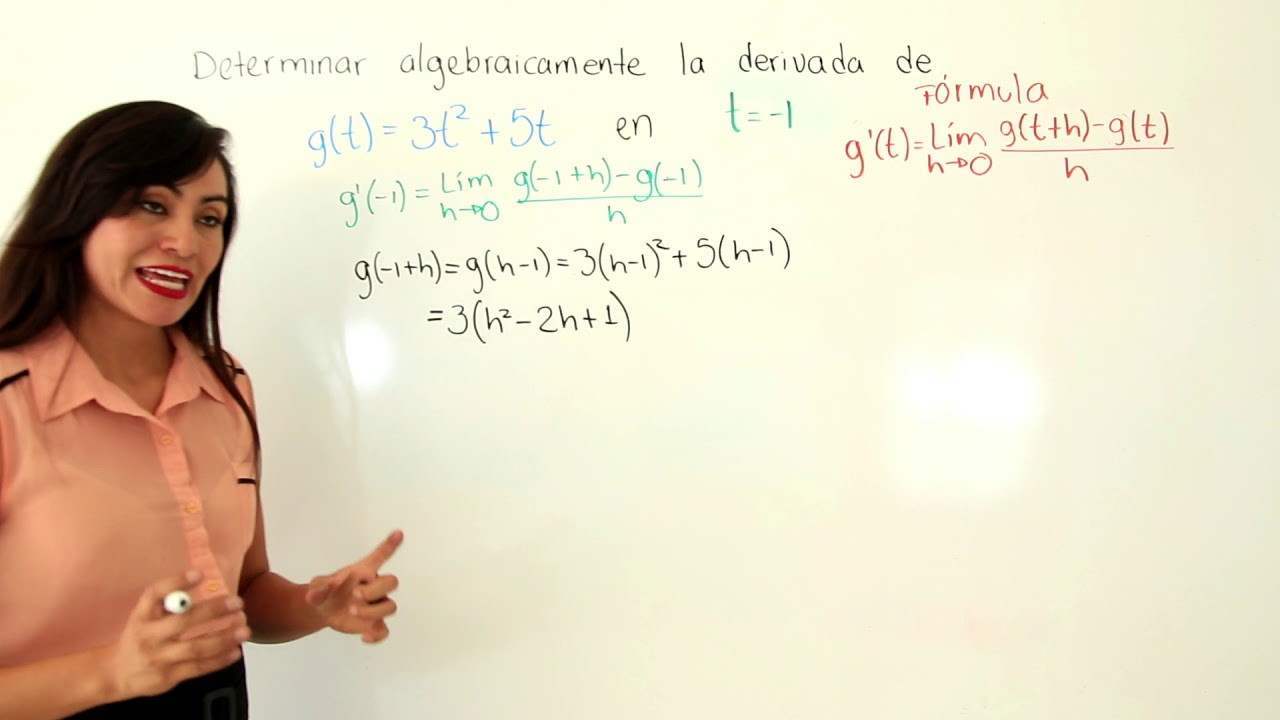 Determinar algebraicamente la derivada de
g(t) = 3t² + 5t en t = -1
Fórmula
g'(t) = Lím h→0 g(t+h) - g(t) / h
g'(-1) = Lím h→0 g(-1+h) - g(-1) / h
g(-1+h) = g(h-1) = 3(h-1)² + 5(h-1)
= 3(h² - 2h + 1)